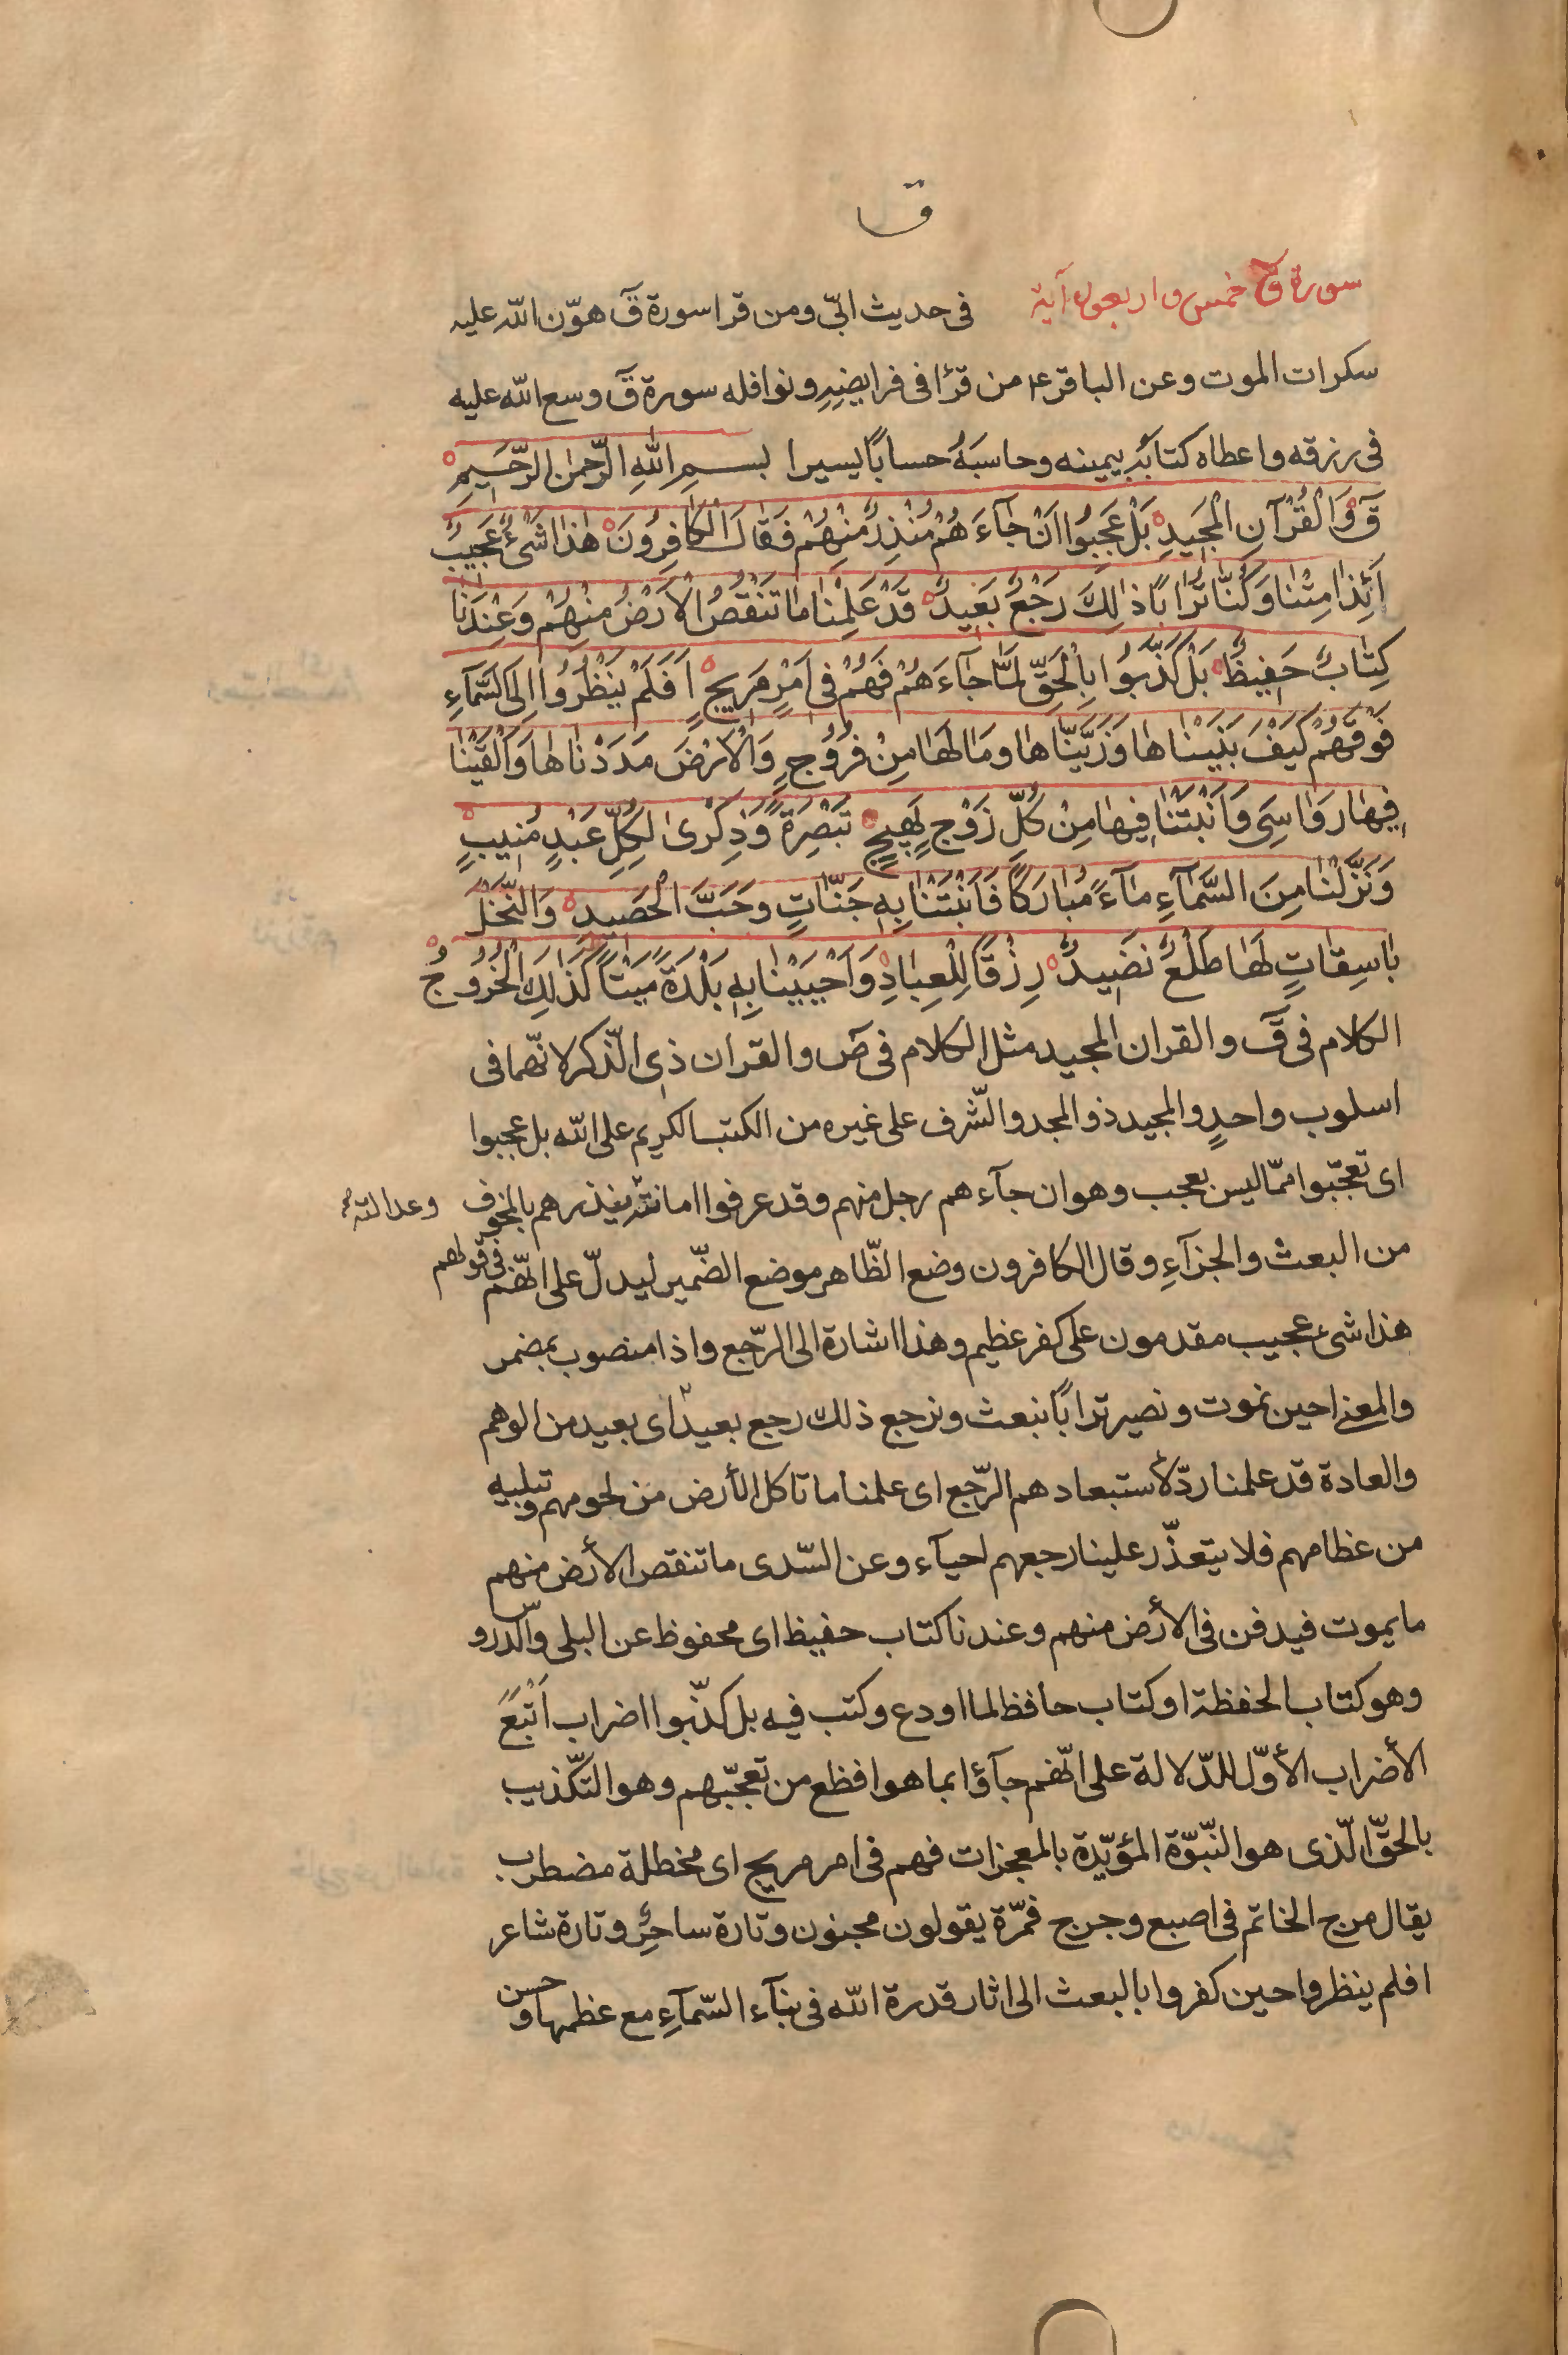 ق
سورة ق خمس واربعون آية في حديث ابيّ ومن قرا سورة قٓ هوّن الله عليه
سكرات الموت وعن الباقر ع من قرٔا في فرايضِهِ ونوافله سورة قٓ وسع الله عليه
في رزقه واعطاه كتابَهُ بيمينه وحاسبَهُ حسابًا يسيرا بسمِ اللهِ الرّحمٰنِ الرّحيمِ
قٓ وَالْقُرْآنِ الْمَجيدِ بَلْ عَجِبُوا اَنْ جٰآءَهُمْ مُنْذِرٌ مِنْهُمْ فَقٰالَ الْكٰافِرُونَ هٰذٰا شَئٌ عَجيبٌ
اَئِذٰا مِتْنٰا وَكُنّٰا تُرٰابًا ذٰلِكَ رَجْعٌ بَعيدٌ قَدْ عَلِمْنٰا مٰا تَنْقُصُ الْاَرْضُ مِنْهُمْ وَعِنْدَنٰا
كِتٰابٌ حَفيظٌ بَلْ كَذَّبُوا بِالْحَقِّ لَمّٰا جٰآءَهُمْ فَهُمْ فى اَمْرٍ مَريجٍ اَفَلَمْ يَنْظُرُوا اِلَى السَّمٰآءِ
فَوْقَهُمْ كَيْفَ بَنَيْنٰاهٰا وَزَيَّنّٰاهٰا وَمٰا لَهٰا مِنْ فُرُوجٍ وَالْاَرْضَ مَدَدْنٰاهٰا وَاَلْقَيْنٰا
فيهٰا رَوٰاسِىَ وَاَنْبَتْنٰا فيهٰا مِنْ كُلِّ زَوْجٍ بَهيجٍ تَبْصِرَةً وَذِكْرىٰ لِكُلِّ عَبْدٍ مُنيبٍ
وَنَزَّلْنٰا مِنَ السَّمٰآءِ مٰآءً مُبٰارَكًا فَاَنْبَتْنٰا بِهِ جَنّٰاتٍ وَحَبَّ الْحَصيدِ وَالنَّخْلَ
بٰاسِقٰاتٍ لَهٰا طَلْعٌ نَضيدٌ رِزْقًا لِلْعِبٰادِ وَاَحْيَيْنٰا بِهِ بَلْدَةً مَيْتًا كَذٰلِكَ الْخُرُوجُ
الكلام في قٓ والقران المجيد مثل الكلام في صٓ والقران ذي الذّكر لانّهما في
اسلوب واحدٍ والمجيد ذو المجد والشّرف على غيره من الكتب الكريم على الله بل عجبوا
اى تعجّبوا ممّا ليس بعجب وهو ان جآءهم رجل منهم وقد عرفوا امانته ينذرهم بالمخوف وعدالته
من البعث والجزآءِ وقال الكافرون وضع الظّاهر موضع الضّمير ليدلّ على انّهم في قولهم
هذا شئ عجيب مقدمون على كفر عظيم وهذا اشارة الى الرّجع واذا منصوب بمضمر
والمعنى احين نموت ونصير ترابًا نبعث ونرجع ذلك رجع بعيدٌ اى بعيد من الوهم
والعادة قد علمنا ردّ لأستبعادهم الرّجع اى علمنا ما تاكل الأرض من لحومهم وتبليه
من عظامهم فلا يتعذّر علينا رجعهم احيآء وعن السّدى ما تنقص الأرض منهم
ما يموت فيدفن في الأرض منهم وعندنا كتاب حفيظ اى محفوظ عن البلى والدّروس
وهو كتاب الحفظة او كتاب حافظ لما اودع وكتب فيه بل كذّبوا اضراب اَتْبَعَ
الأضراب الأوّل للدّلالة على انّهم جآؤا بما هو افظع من تعجّبهم وهو التّكذيب
بالحقّ الّذى هو النّبوّة المؤيّدة بالمعجزات فهم في امر مريج اى مختلط مضطرب
يقال مرج الخاتم في اصبع وجرج فمرّة يقولون مجنون وتارة ساحرٌ وتارة شاعر
افلم ينظروا حين كفروا بالبعث الى اثار قدرة الله في بنآء السّمآءِ مع عظمها وحسن